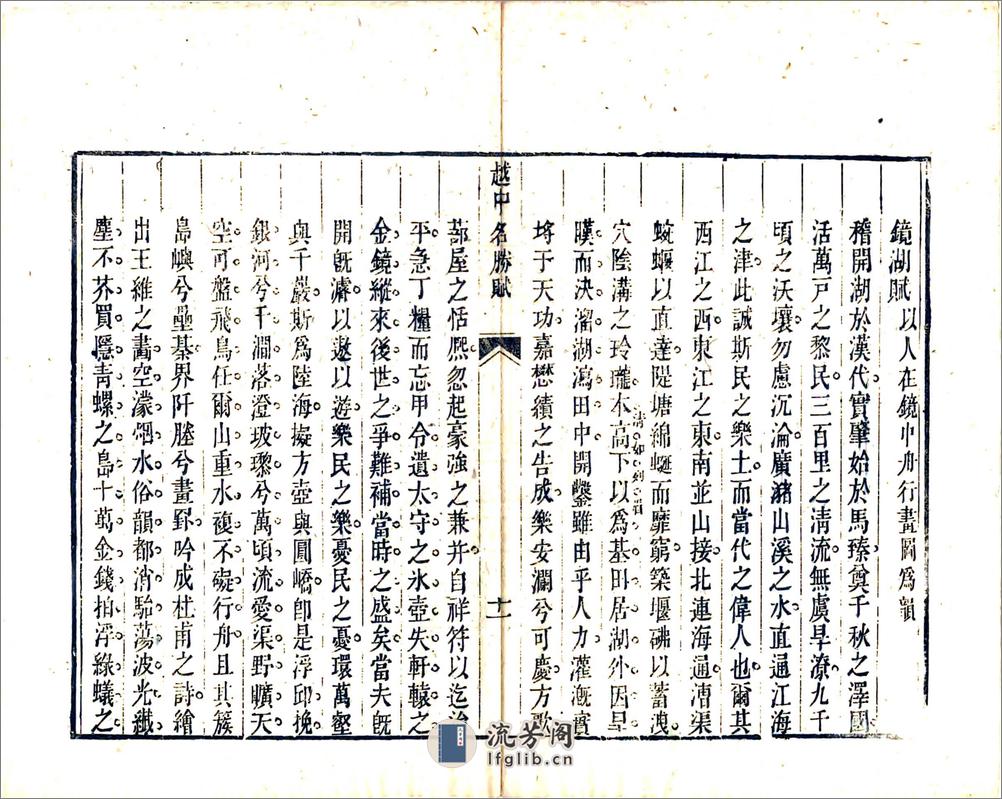 鏡湖賦以人在鏡中舟行畫圖爲韻
稽開湖於漢代實肇始於馬臻奠千秋之澤國
活萬戸之黎民三百里之淸流無虞旱潦九千
頃之沃壤勿慮沉淪廣瀦山溪之水直通江海
之津此誠斯民之樂土而當代之偉人也爾其
西江之西東江之東南並山接北連海通漕渠
蜿蜒以直達隄塘綿蜒而靡窮築堰砩以蓄洩
穴陰溝之玲瓏本高下以爲基田居湖外因旱
清如列眉
暵而決溜湖瀉田中開鑿雖由乎人力灌漑實
埒于天功嘉懋績之告成樂安瀾兮可慶方歌
越中名勝賦
十一
蔀屋之恬熙忽起豪強之兼并自祥符以迄治
平急丁糧而忘甲令遺太守之氷壺失軒轅之
金鏡縱來後世之爭難補當時之盛矣當夫旣
開旣濬以遨以遊樂民之樂憂民之憂環萬壑
與千巖斯爲陸海擬方壺與圓嶠卽是浮邱挽
銀河兮千澗落澄玻瓈兮萬頃流愛渠野曠天
空可盤飛鳥任爾山重水複不礙行舟且其簇
島嶼兮壘棊界阡塍兮畫卦吟成杜甫之詩繪
出王維之畵空濛烟水俗韻都消駘蕩波光纖
塵不芥買隱靑螺之島十萬金錢拍浮綠蟻之
流芳阁
lfglib.cn